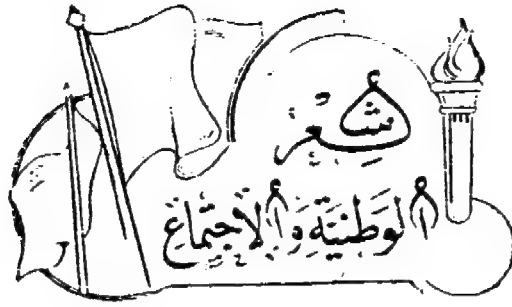 شِعْر
الوَطَنِيَّةِ وَالاجْتِمَاعِ